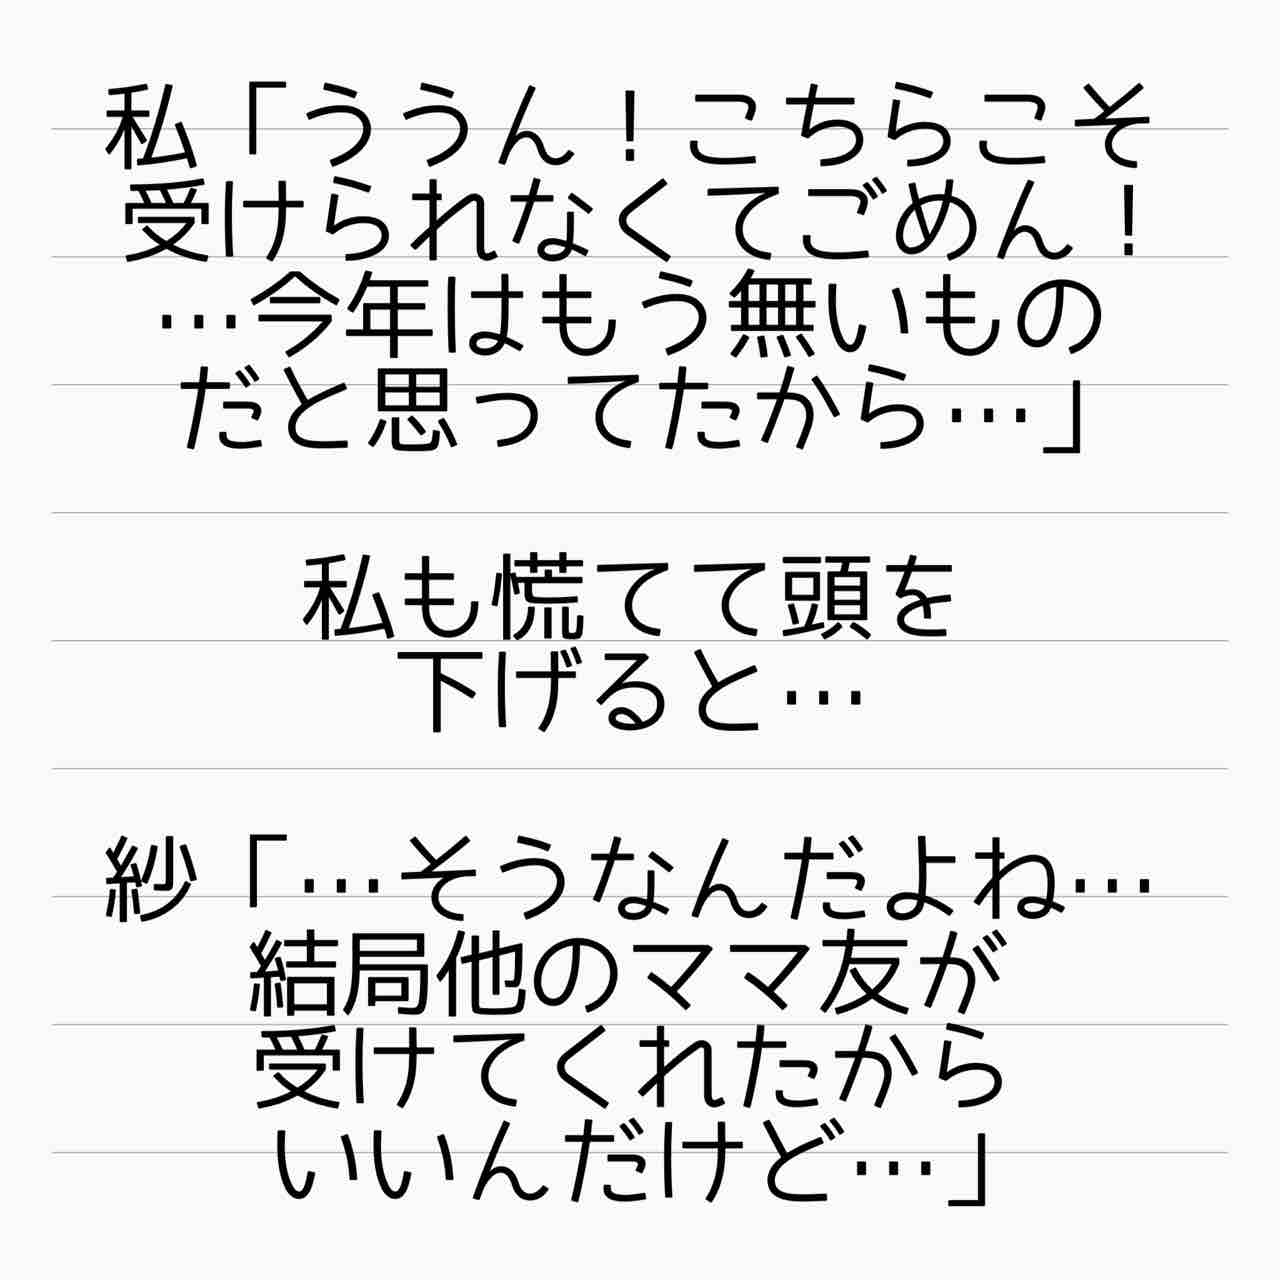 私「ううん！こちらこそ
受けられなくてごめん！
…今年はもう無いもの
だと思ってたから…」
私も慌てて頭を
下げると…
紗「…そうなんだよね…
結局他のママ友が
受けてくれたから
いいんだけど…」